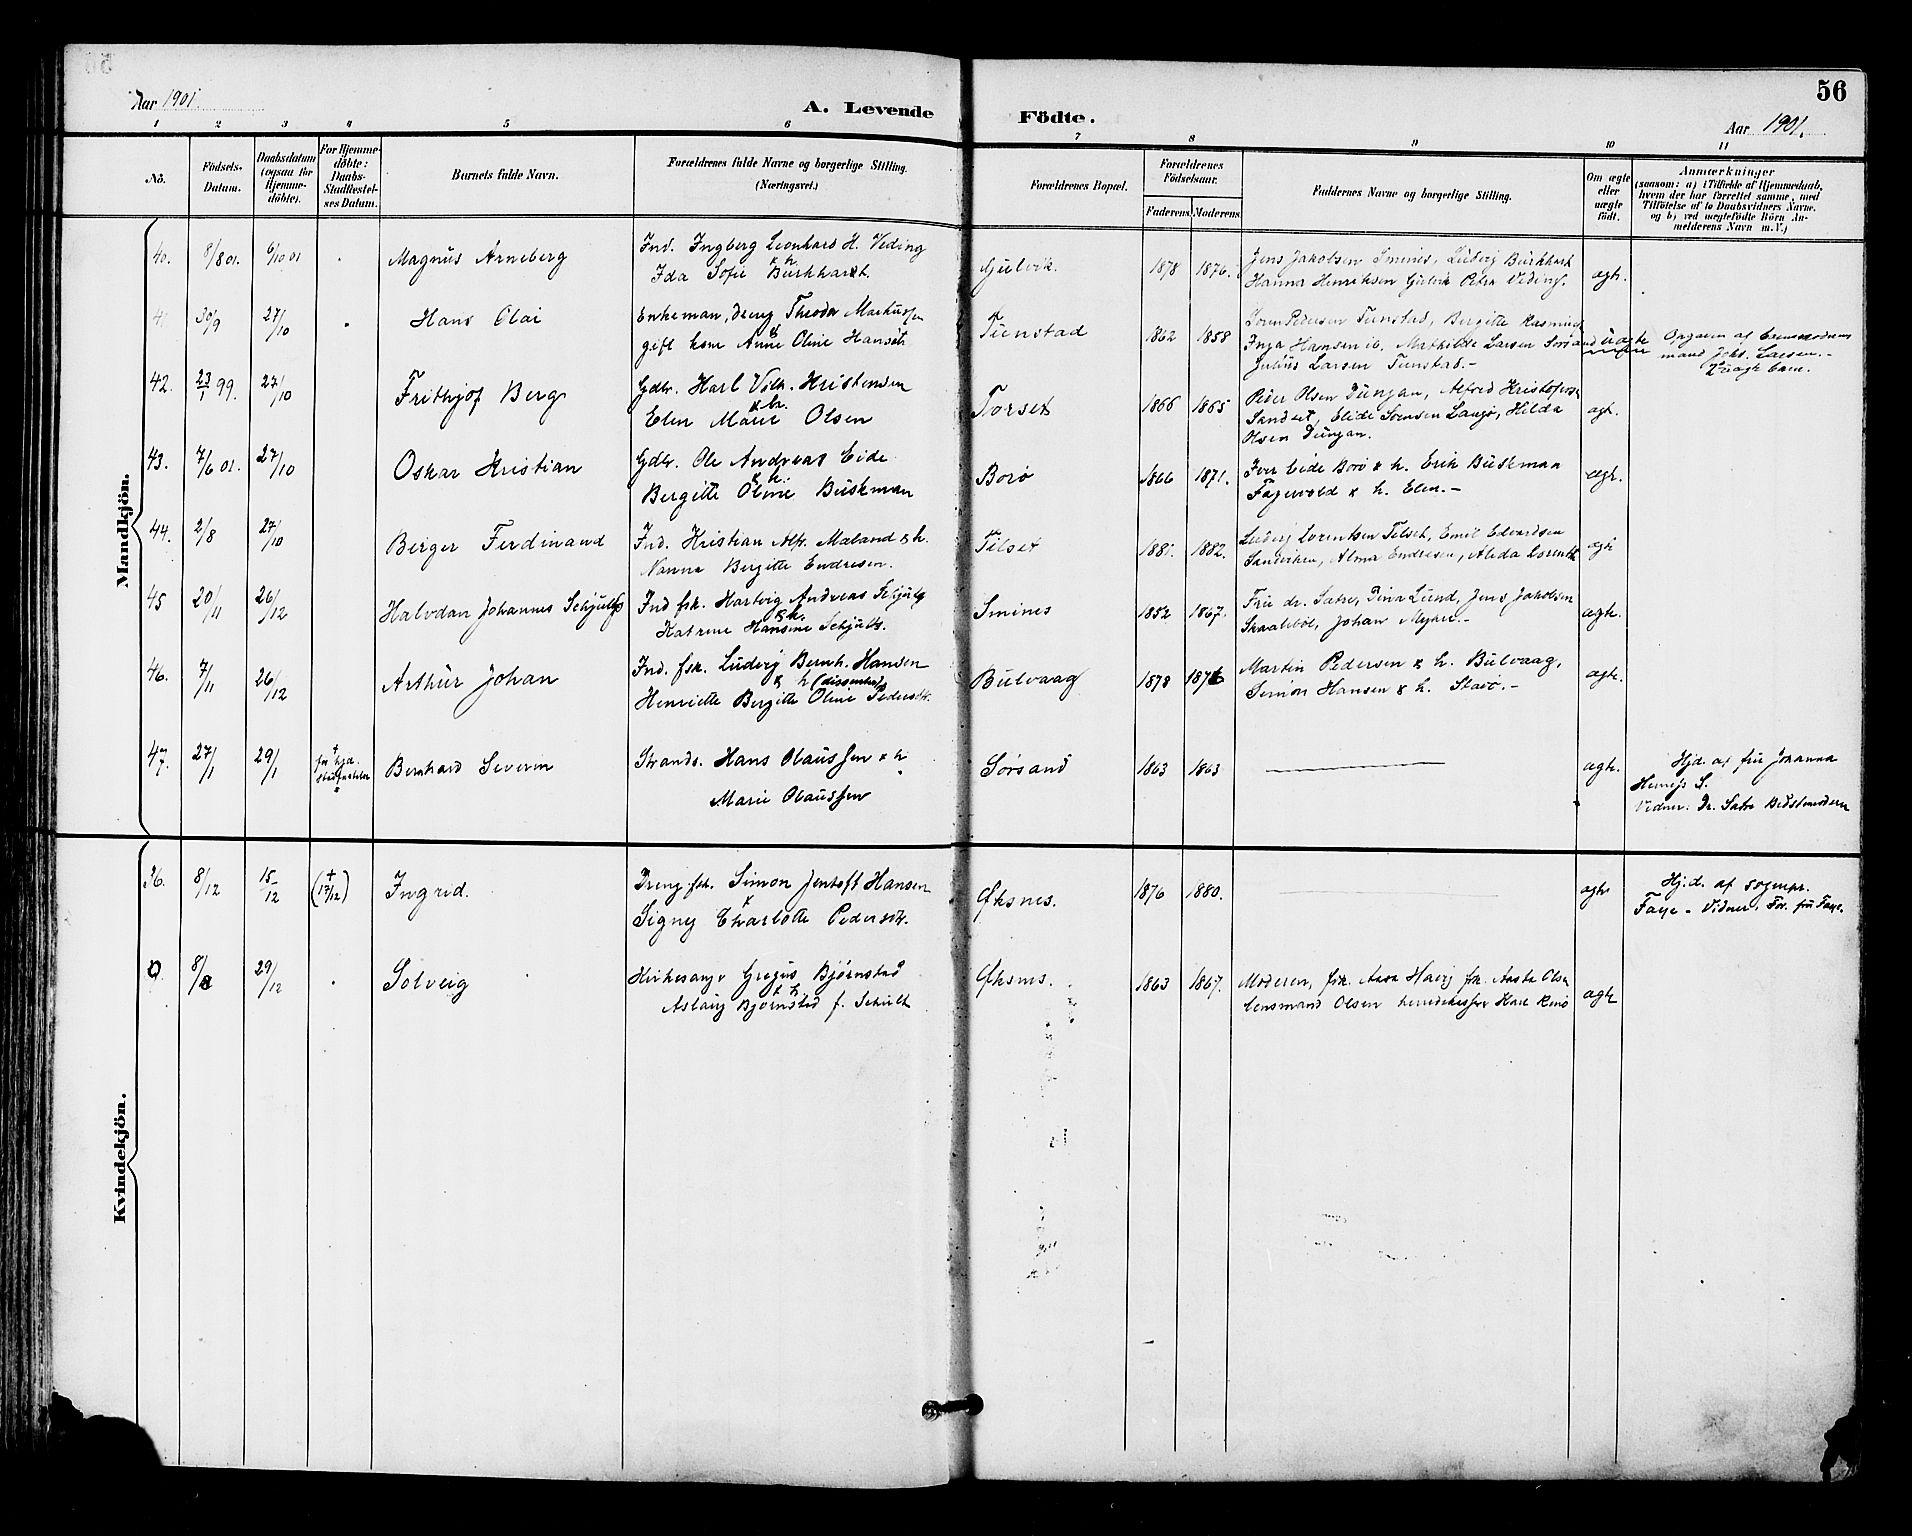 56
Aar 1901.
A. Levende Födte.
Aar 1901.
1 2 3 4 5 6 7 8 9 10 11
No.
Födsels-Datum.
Daabsdatum (ogsaa for Hjemmedöbte).
For Hjemmedöbte: Daabs-Stadfæstelses Datum.
Barnets fulde Navn.
Forældrenes fulde Navne og borgerlige Stilling.
(Næringsvei.)
Forældrenes Bopæl.
Forældrenes Födselsaar.
Faderens. Moderens.
Faddernes Navne og borgerlige Stilling.
Om ægte eller uægte födt.
Anmærkninger
(saasom: a) i Tilfælde af Hjemmedaab,
hvem der har forrettet samme, med
Tilföielse af to Daabsvidners Navne,
og b) ved uægtefödte Börn An-
melderens Navn m. V.)
Mandkjön.
40. 8/8 01. 6/10 01 Magnus Arneberg Ind. Ingberg Leonhard H. Veding & h. Gulvik. 1878 1876. Jens Jakobsen Smines, Ludvig Burkhart ægte.
Ida Sofie Burkhardt. Hanna Henriksen Gulvik Petra Veding.
30/9 27/10 Hans Olai Enkeman, dreng Theodor Markussen & Tunstad 1862 1858 Soren Pedersen Tunstad, Bergitte Rasmuss uægte
gift kone Anne Oline Hansdt. Inga Hansen ib. Mathilde Larsen Sorsand
Julius Larsen Tunstad.-
mand Johs. Larsen.-
2 uægte barn.
42. 23/1 99. 27/10 Frithjof Berg Gdbr. Karl Vilh. Kristensen & h. Torset 1866 1865 Peder Olsen Dungan, Alfred Kristofers ægt.
Elen Marie Olsen Sandset, Elide Sorensen Langø, Hilda
Olsen Dungan.
43. 7/6 01. 27/10 Oskar Kristian Gdbr. Ole Andreas Eide & h. Borø 1866 1871. Iver Eide Borø & h. Erik Buskman ægt.
Bergitte Oline Buskman Fagervold & h. Elen.-
44. 2/8 27/10 Berger Ferdinand Ind. Kristian Alfr. Maland & h. Tilset 1881. 1882. Ludvig Lorentsen Tilset, Emil Edvardsen ægt
Nanna Bergitte Endresen. Sandviken, Alma Endresen, Alida Lorents
45 20/11 26/12 Halvdan Johannes Schjults Ind fsk. Hartvig Andreas Schjults & h. Smines 1852 1867. Fru dr. Sætre, Dina Lund, Jens Jakobsen ægte.
Katrine Hansine Schjults. Skaalebøl, Johan Myhre.-
46. 7/11 26/12 Arthur Johan Ind. fsk. Ludvig Bernh. Hansen & h (dissenter) Bulvaag 1878 1876 Martin Pedersen & h. Bulvaag, ægte.
Henriette Bergitte Oline Pedersdt. Simon Hansen & h. Starø.-
47. 27/1 29/1 + før hja. Bernhard Severin Strands. Hans Olaussen & h Sørsand 1863 1863 ægte. Hjd. af fru Johanna
Marie Olaussen Vidner: Dr. Sætre Bedstemoderen
Kvindekjön.
36. 8/12 15/12 (+ 17/12) Ingrid. Dreng fsk. Simon Jentoft Hansen & Øksnes. 1876 1880. ægte Hj.d. af sogenpr.
Signy Charlotte Pedersdt. Faye - Vidner, For. fru Faye.
8/8 29/12 Solveig Kirkesanger Gregus Bjørnstad & h Øksnes. 1863 1867. Moderen, frk. Aasa Havig frk. Aasta Olsen ægte
Aslaug Bjørnstad f. Schult Lensmand Olsen herredskasser Karl Renø